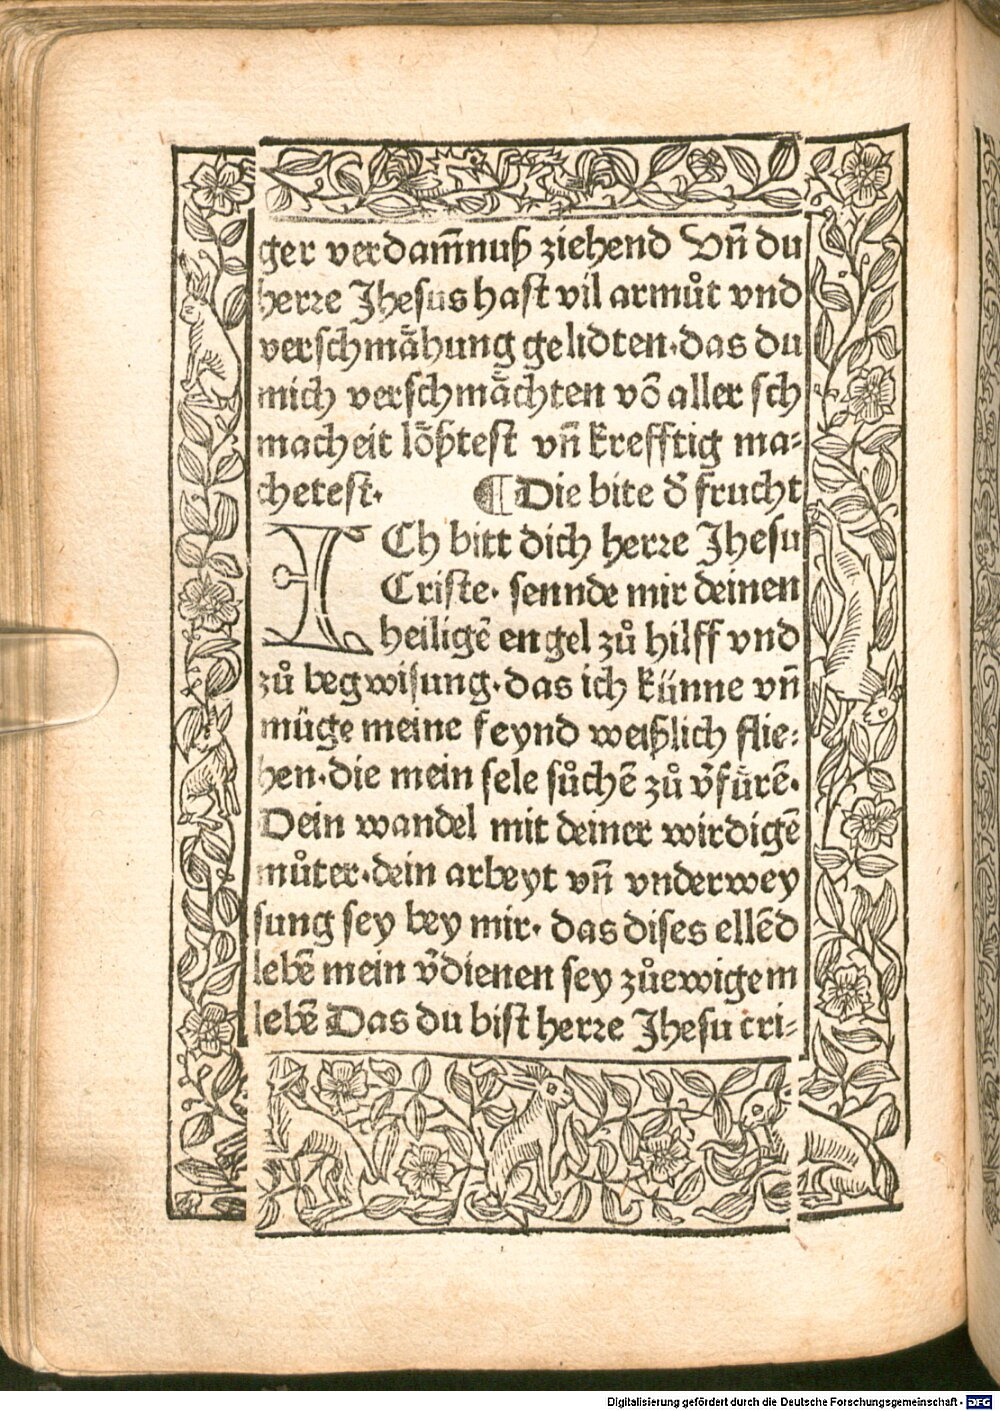 ger verdam̄nuß ziehend Vn̄ du
herre Jhesus hast vil armůt vnd
verschmähung gelidten·das du
mich verschmächten vō aller sch
macheit lößtest vn̄ krefftig ma⸗
chetest· ¶Die bite d̄ frucht
ICh bitt dich herre Jhesu
Criste· sennde mir deinen
heiligē engel zů hilff vnd
zů begwisung·das ich künne vn̄
müge meine feynd weißlich flie⸗
hen·die mein sele sůchē zů v̄fürē·
Dein wandel mit deiner wirdigē
můter·dein arbeyt vn̄ vnderwey
sung sey bey mir· das dises ellēd
lebē mein v̄dienen sey zůewigem
lebē Das du bist herre Jhesu cri⸗
Digitalisierung gefördert durch die Deutsche Forschungsgemeinschaft - DFG